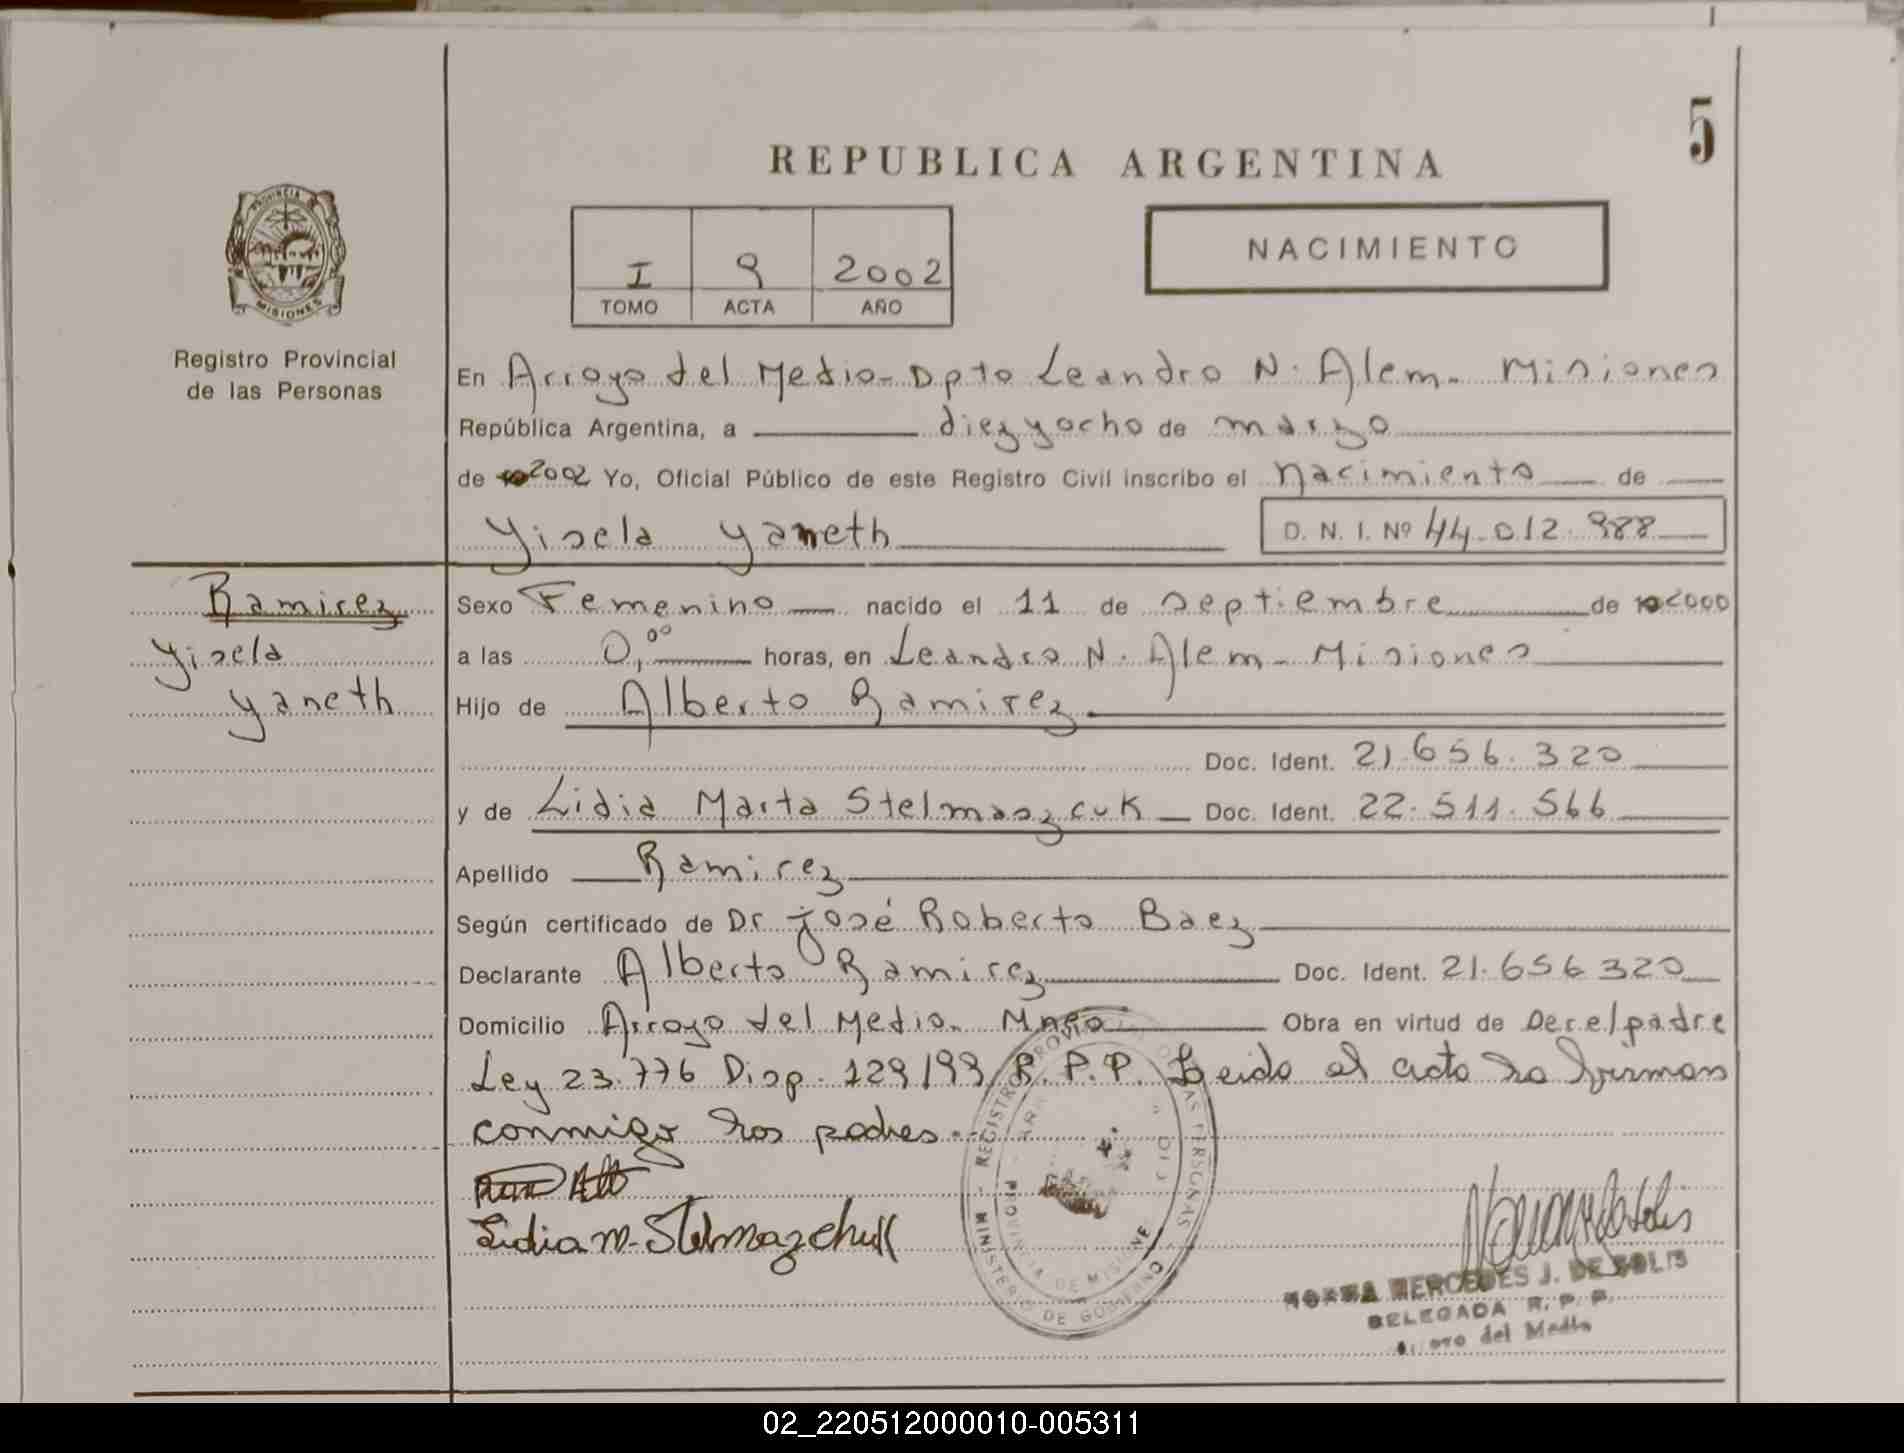 5
REPUBLICA ARGENTINA
NACIMIENTO
I 9 2002
TOMO ACTA AÑO
PROVINCIA
MISIONES
Registro Provincial
de las Personas
En Arroyo del Medio - Dpto Leandro N. Alem - Misiones
República Argentina, a diez y ocho de marzo
de 2002 Yo, Oficial Público de este Registro Civil inscribo el nacimiento de
Yisela Yaneth D. N. I. Nº 44.012.988
Ramirez
Yisela
Yaneth
Sexo Femenino nacido el 11 de septiembre de 2000
a las 0,00 horas, en Leandro N. Alem - Misiones
Hijo de Alberto Ramirez
Doc. Ident. 21.656.320
y de Lidia Marta Stelmaszcuk Doc. Ident. 22.511.566
Apellido Ramirez
Según certificado de Dr José Roberto Baez
Declarante Alberto Ramirez Doc. Ident. 21.656320
Domicilio Arroyo del Medio - Mnes Obra en virtud de Der el padre
Ley 23.776 Disp. 129/99 R.P.P. Leida el acta la firman
conmigo los padres.
Lidia M. Stelmazchuk
REGISTRO PROVINCIAL DE LAS PERSONAS
MINISTERIO DE GOBIERNO
PROVINCIA DE MISIONES
NORMA MERCEDES J. DE SOLIS
DELEGADA R. P. P.
Arroyo del Medio
02_220512000010-005311